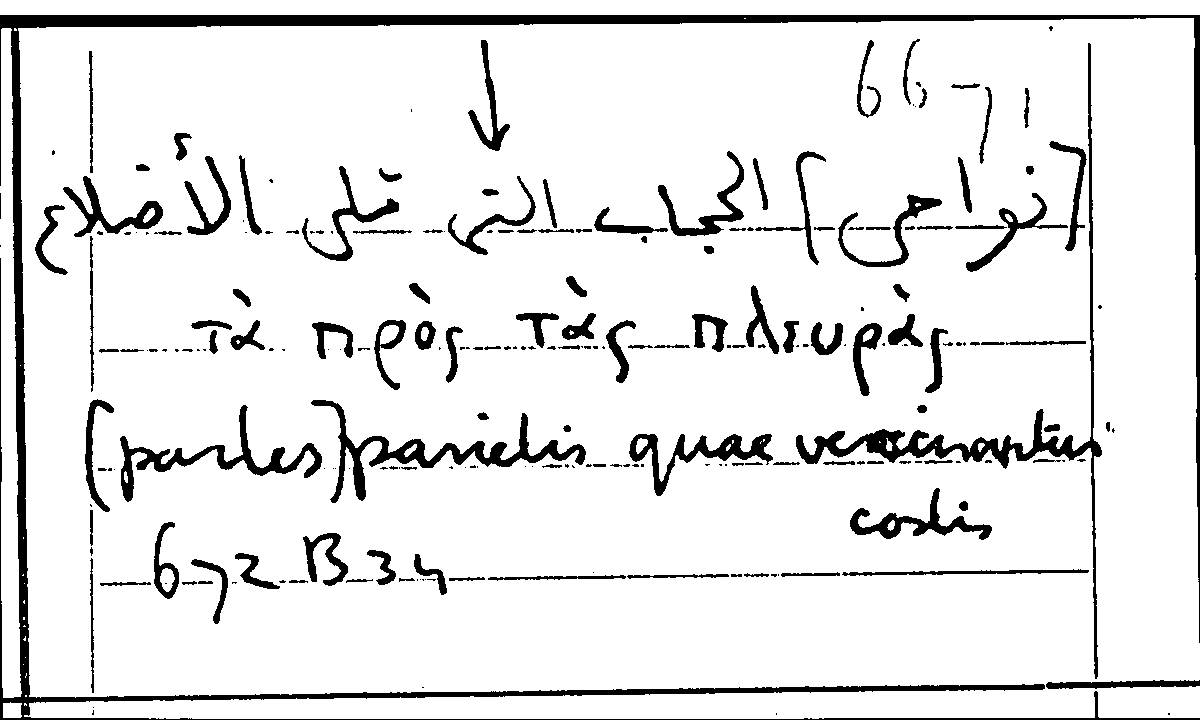 66 71
[نواحى] الحجاب التى تلى الأضلاع
τὰ πρὸς τὰς πλευράς
(partes) parietis quae vicinantur
costis
672 B 34